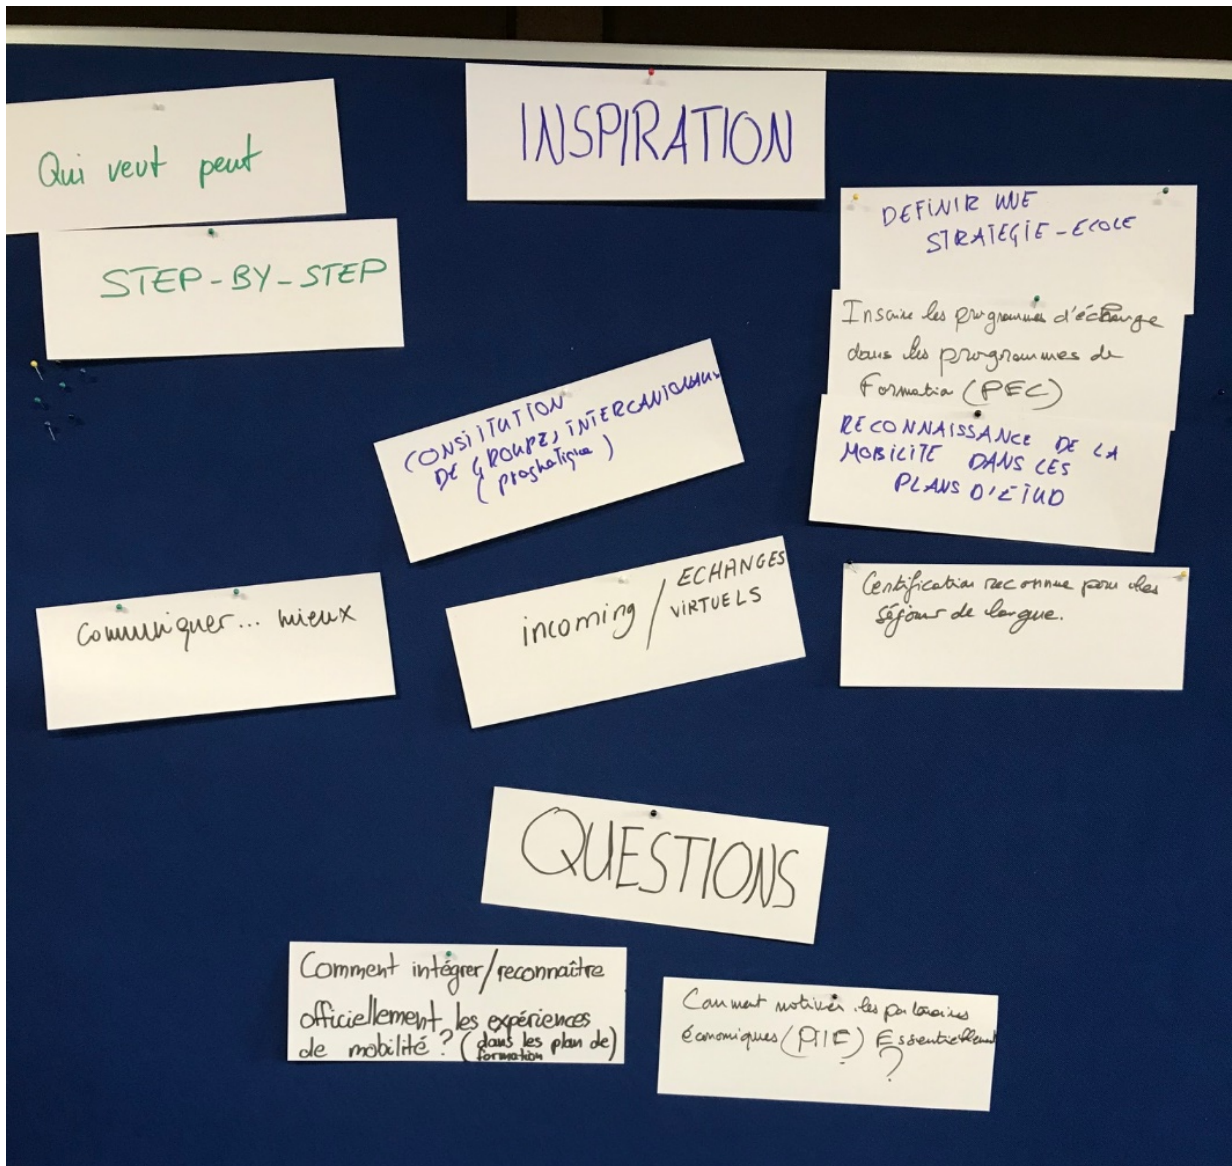 INSPIRATION
Qui veut peut
STEP-BY-STEP
DEFINIR UNE
STRATEGIE-ECOLE
Inscrire les programmes d'échange
dans les programmes de
Formation (PEC)
RECONNAISSANCE DE LA
MOBILITE DANS CES
PLANS D'ÉTUD
CONSTITUTION
DE GROUPES INTERCANTONAUX
(pragmatique)
Communiquer... mieux
incoming / ECHANGES
VIRTUELS
Certification reconnue pour des
séjours de langue.
QUESTIONS
Comment intégrer/reconnaître
officiellement les expériences
de mobilité? (dans les plan de)
formation
Comment motiver les partenaires
économiques (PME) Essentiellement
?